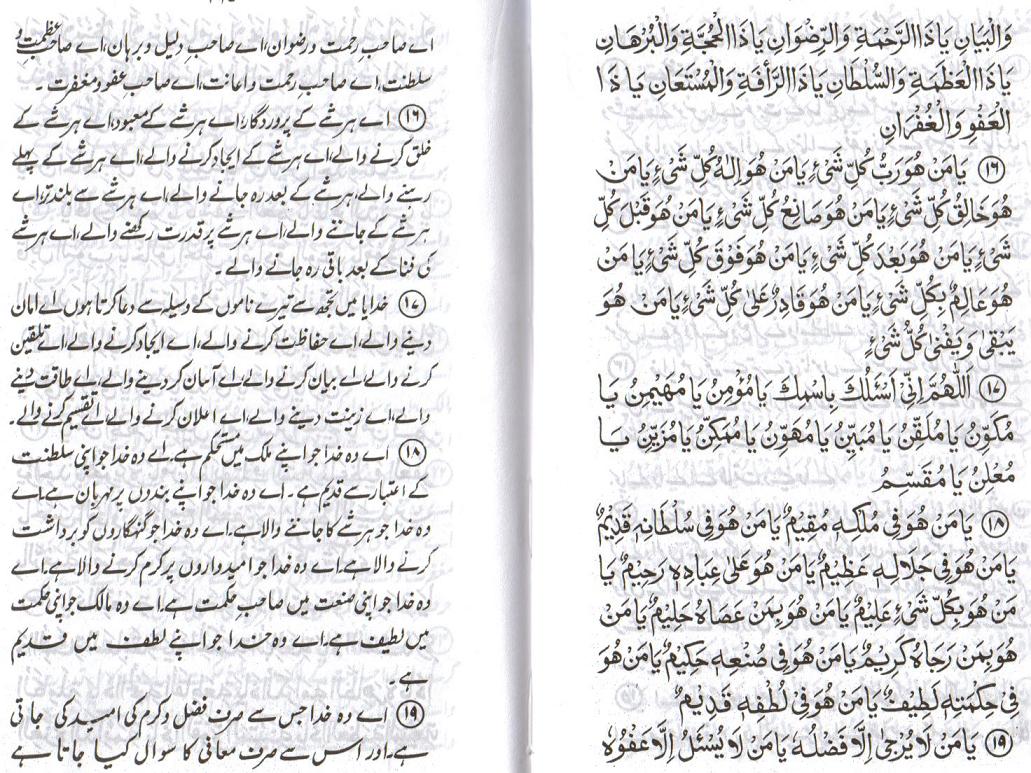 وَالْبَيَانِ يَاذَا الرَّحْمَةِ وَالرِّضْوَانِ يَاذَا الْحُجَّةِ وَالْبُرْهَانِ
يَاذَا الْعَظَمَةِ وَالسُّلْطَانِ يَاذَا الرَّأْفَةِ وَالْمُسْتَعَانِ يَا ذَا
الْعَفْوِ وَالْغُفْرَانِ
۱۶ يَامَنْ هُوَ رَبُّ كُلِّ شَیْءٍ يَامَنْ هُوَ اِلٰهُ كُلِّ شَیْءٍ يَامَنْ
هُوَ خَالِقُ كُلِّ شَیْءٍ يَامَنْ هُوَ صَانِعُ كُلِّ شَیْءٍ يَامَنْ هُوَ قَبْلَ كُلِّ
شَیْءٍ يَامَنْ هُوَ بَعْدَ كُلِّ شَیْءٍ يَامَنْ هُوَ فَوْقَ كُلِّ شَیْءٍ يَامَنْ
هُوَ عَالِمٌ بِكُلِّ شَیْءٍ يَامَنْ هُوَ قَادِرٌ عَلٰى كُلِّ شَیْءٍ يَامَنْ هُوَ
يَبْقٰى وَ يَفْنٰى كُلُّ شَیْءٍ
۱۷ اَللّٰهُمَّ اِنِّیْ اَسْئَلُكَ بِاسْمِكَ يَا مُؤْمِنُ يَا مُهَيْمِنُ يَا
مُكَوِّنُ يَا مُلَقِّنُ يَا مُبَيِّنُ يَا مُهَوِّنُ يَا مُمَكِّنُ يَا مُزَيِّنُ يَا
مُعْلِنُ يَا مُقَسِّمُ
۱۸ يَامَنْ هُوَ فِیْ مُلْكِهٖ مُقِيْمٌ يَامَنْ هُوَ فِیْ سُلْطَانِهٖ قَدِيْمٌ
يَامَنْ هُوَ فِیْ جَلَالِهٖ عَظِيْمٌ يَامَنْ هُوَ عَلٰى عِبَادِهٖ رَحِيْمٌ يَا
مَنْ هُوَ بِكُلِّ شَیْءٍ عَلِيْمٌ يَامَنْ هُوَ بِمَنْ عَصَاهُ حَلِيْمٌ يَامَنْ
هُوَ بِمَنْ رَجَاهُ كَرِيْمٌ يَامَنْ هُوَ فِیْ صُنْعِهٖ حَكِيْمٌ يَامَنْ هُوَ
فِیْ حِكْمَتِهٖ لَطِيْفٌ يَامَنْ هُوَ فِیْ لُطْفِهٖ قَدِيْمٌ
۱۹ يَامَنْ لَا يُرْجٰى اِلَّا فَضْلُهٗ يَامَنْ لَا يُسْئَلُ اِلَّا عَفْوُهٗ
اے صاحبِ رحمت و رضوان، اے صاحبِ دلیل و برہان، اے صاحبِ عظمت و
سلطنت، اے صاحبِ رحمت و اعانت، اے صاحب عفو و مغفرت۔
۱۶ اے ہر شے کے پروردگار، اے ہر شے کے معبود، اے ہر شے کے
خلق کرنے والے، اے ہر شے کے ایجاد کرنے والے، اے ہر شے کے پہلے
رہنے والے، ہر شے کے بعد رہ جانے والے، اے ہر شے سے بلند تر، اے
ہر شے کے جاننے والے، اے ہر شے پر قدرت رکھنے والے، اے ہر شے
کی فنا کے بعد باقی رہ جانے والے۔
۱۷ خدایا میں تجھ سے تیرے ناموں کے وسیلہ سے دعا کرتا ہوں اے امان
دینے والے، اے حفاظت کرنے والے، اے ایجاد کرنے والے، اے تلقین
کرنے والے، اے بیان کرنے والے، اے آسان کر دینے والے، اے طاقت دینے
والے، اے زینت دینے والے، اے اعلان کرنے والے، اے تقسیم کرنے والے۔
۱۸ اے وہ خدا جو اپنے ملک میں مستحکم ہے۔ اے وہ خدا جو اپنی سلطنت
کے اعتبار سے قدیم ہے۔ اے وہ خدا جو اپنے بندوں پر مہربان ہے۔ اے
وہ خدا جو ہر شے کا جاننے والا ہے۔ اے وہ خدا جو گنہگاروں کو برداشت
کرنے والا ہے۔ اے وہ خدا جو امیدواروں پر کرم کرنے والا ہے۔ اے
وہ خدا جو اپنی صنعت میں صاحبِ حکمت ہے۔ اے وہ مالک جو اپنی حکمت
میں لطیف ہے۔ اے وہ خدا جو اپنے لطف میں قدیم
ہے۔
۱۹ اے وہ خدا جس سے صرف فضل و کرم کی امید کی جاتی
ہے۔ اور اس سے صرف معافی کا سوال کیا جاتا ہے